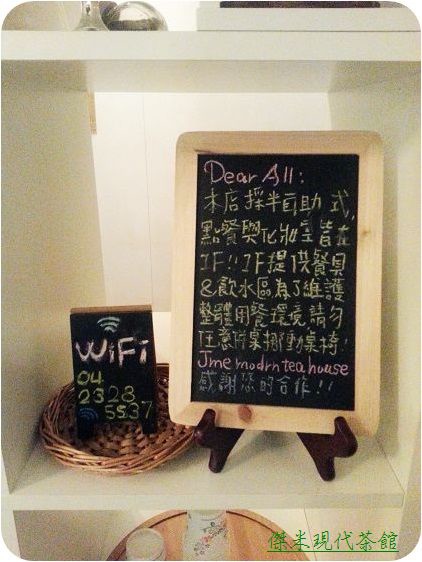 Dear All:
本店採半自助式,
點餐與化妝室皆在
1F!! 1F提供餐具
&飲水區為了維護
整體用餐環境請勿
任意併桌挪動桌椅!
Jme modrn tea house
感謝您的合作!!
WiFi
04
2328
5537
傑米現代茶館